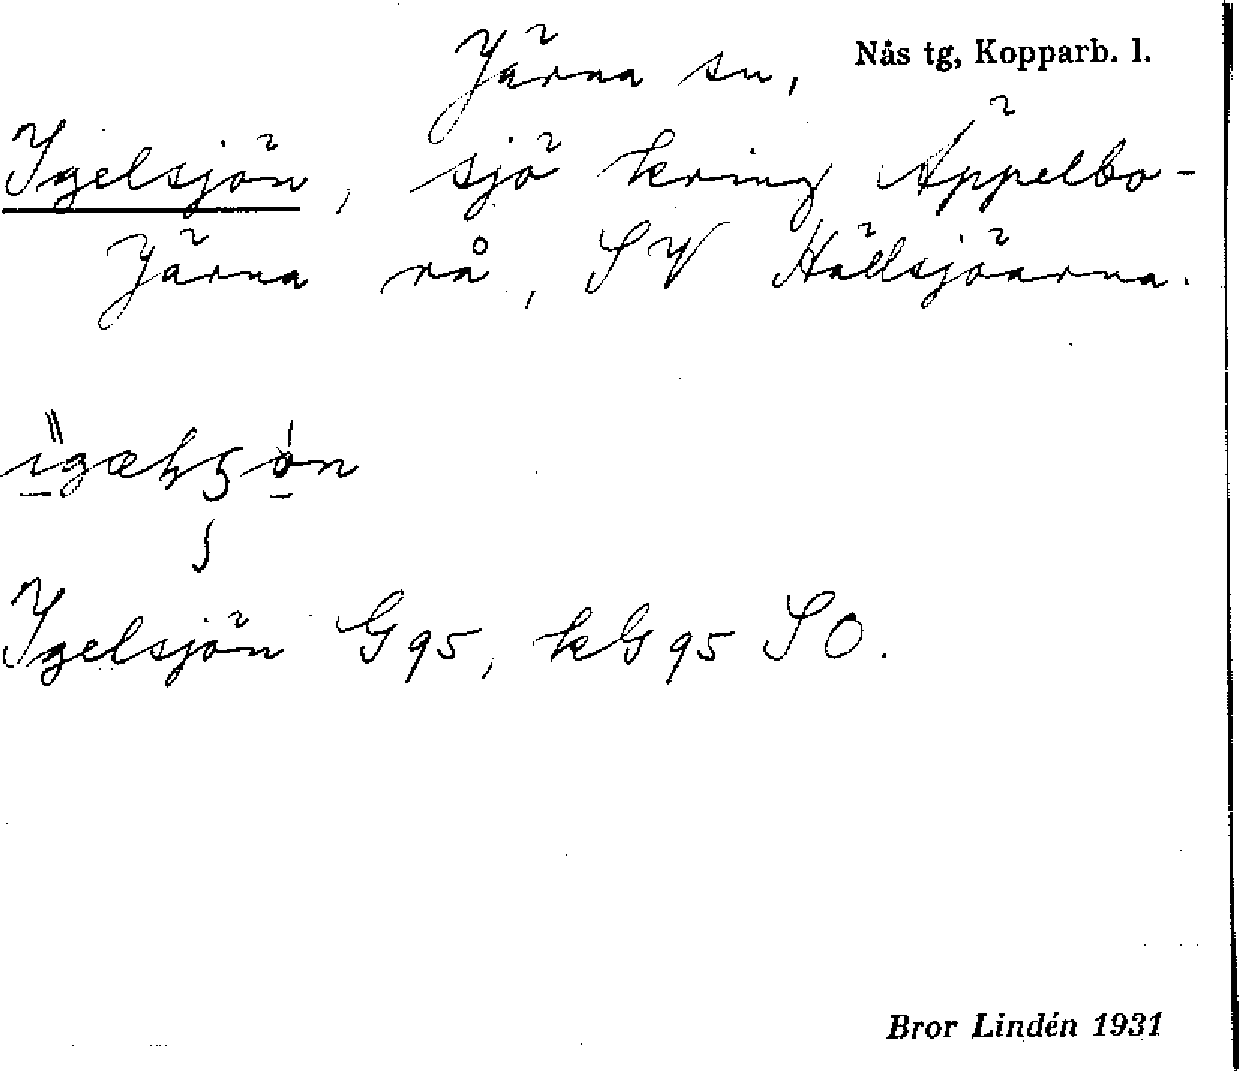 Järna sn, Nås tg, Kopparb. l.
Igelsjön, sjö kring Äppelbo-
Järna rå, SV Hällsjöarna.
Igelsjön G 95, kG 95 SO.
Bror Lindén 1931